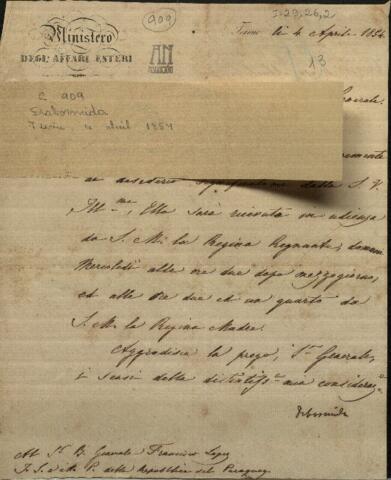 909
I-29,26,2
Ministero
DEGL'AFFARI ESTERI
AN
Torino li 4 Aprile 1854
13
Generale
C 909
Dabormida
4 abril 1854
desiderio dalla S. V.
Ill.ma, Ella sarà ricevuta in udienza
da S. M. la Regina Regnante, domani
Mercoledì alle ore due dopo mezzogiorno,
et alle ore due et un quarto da
S. M. la Regina Madre.
Aggradisca la prego, Sr. Generale,
i sensi della mia
Dabormida
Al Sr. B. Generale Francisco Lopez
P. della Repubblica del Paraguay